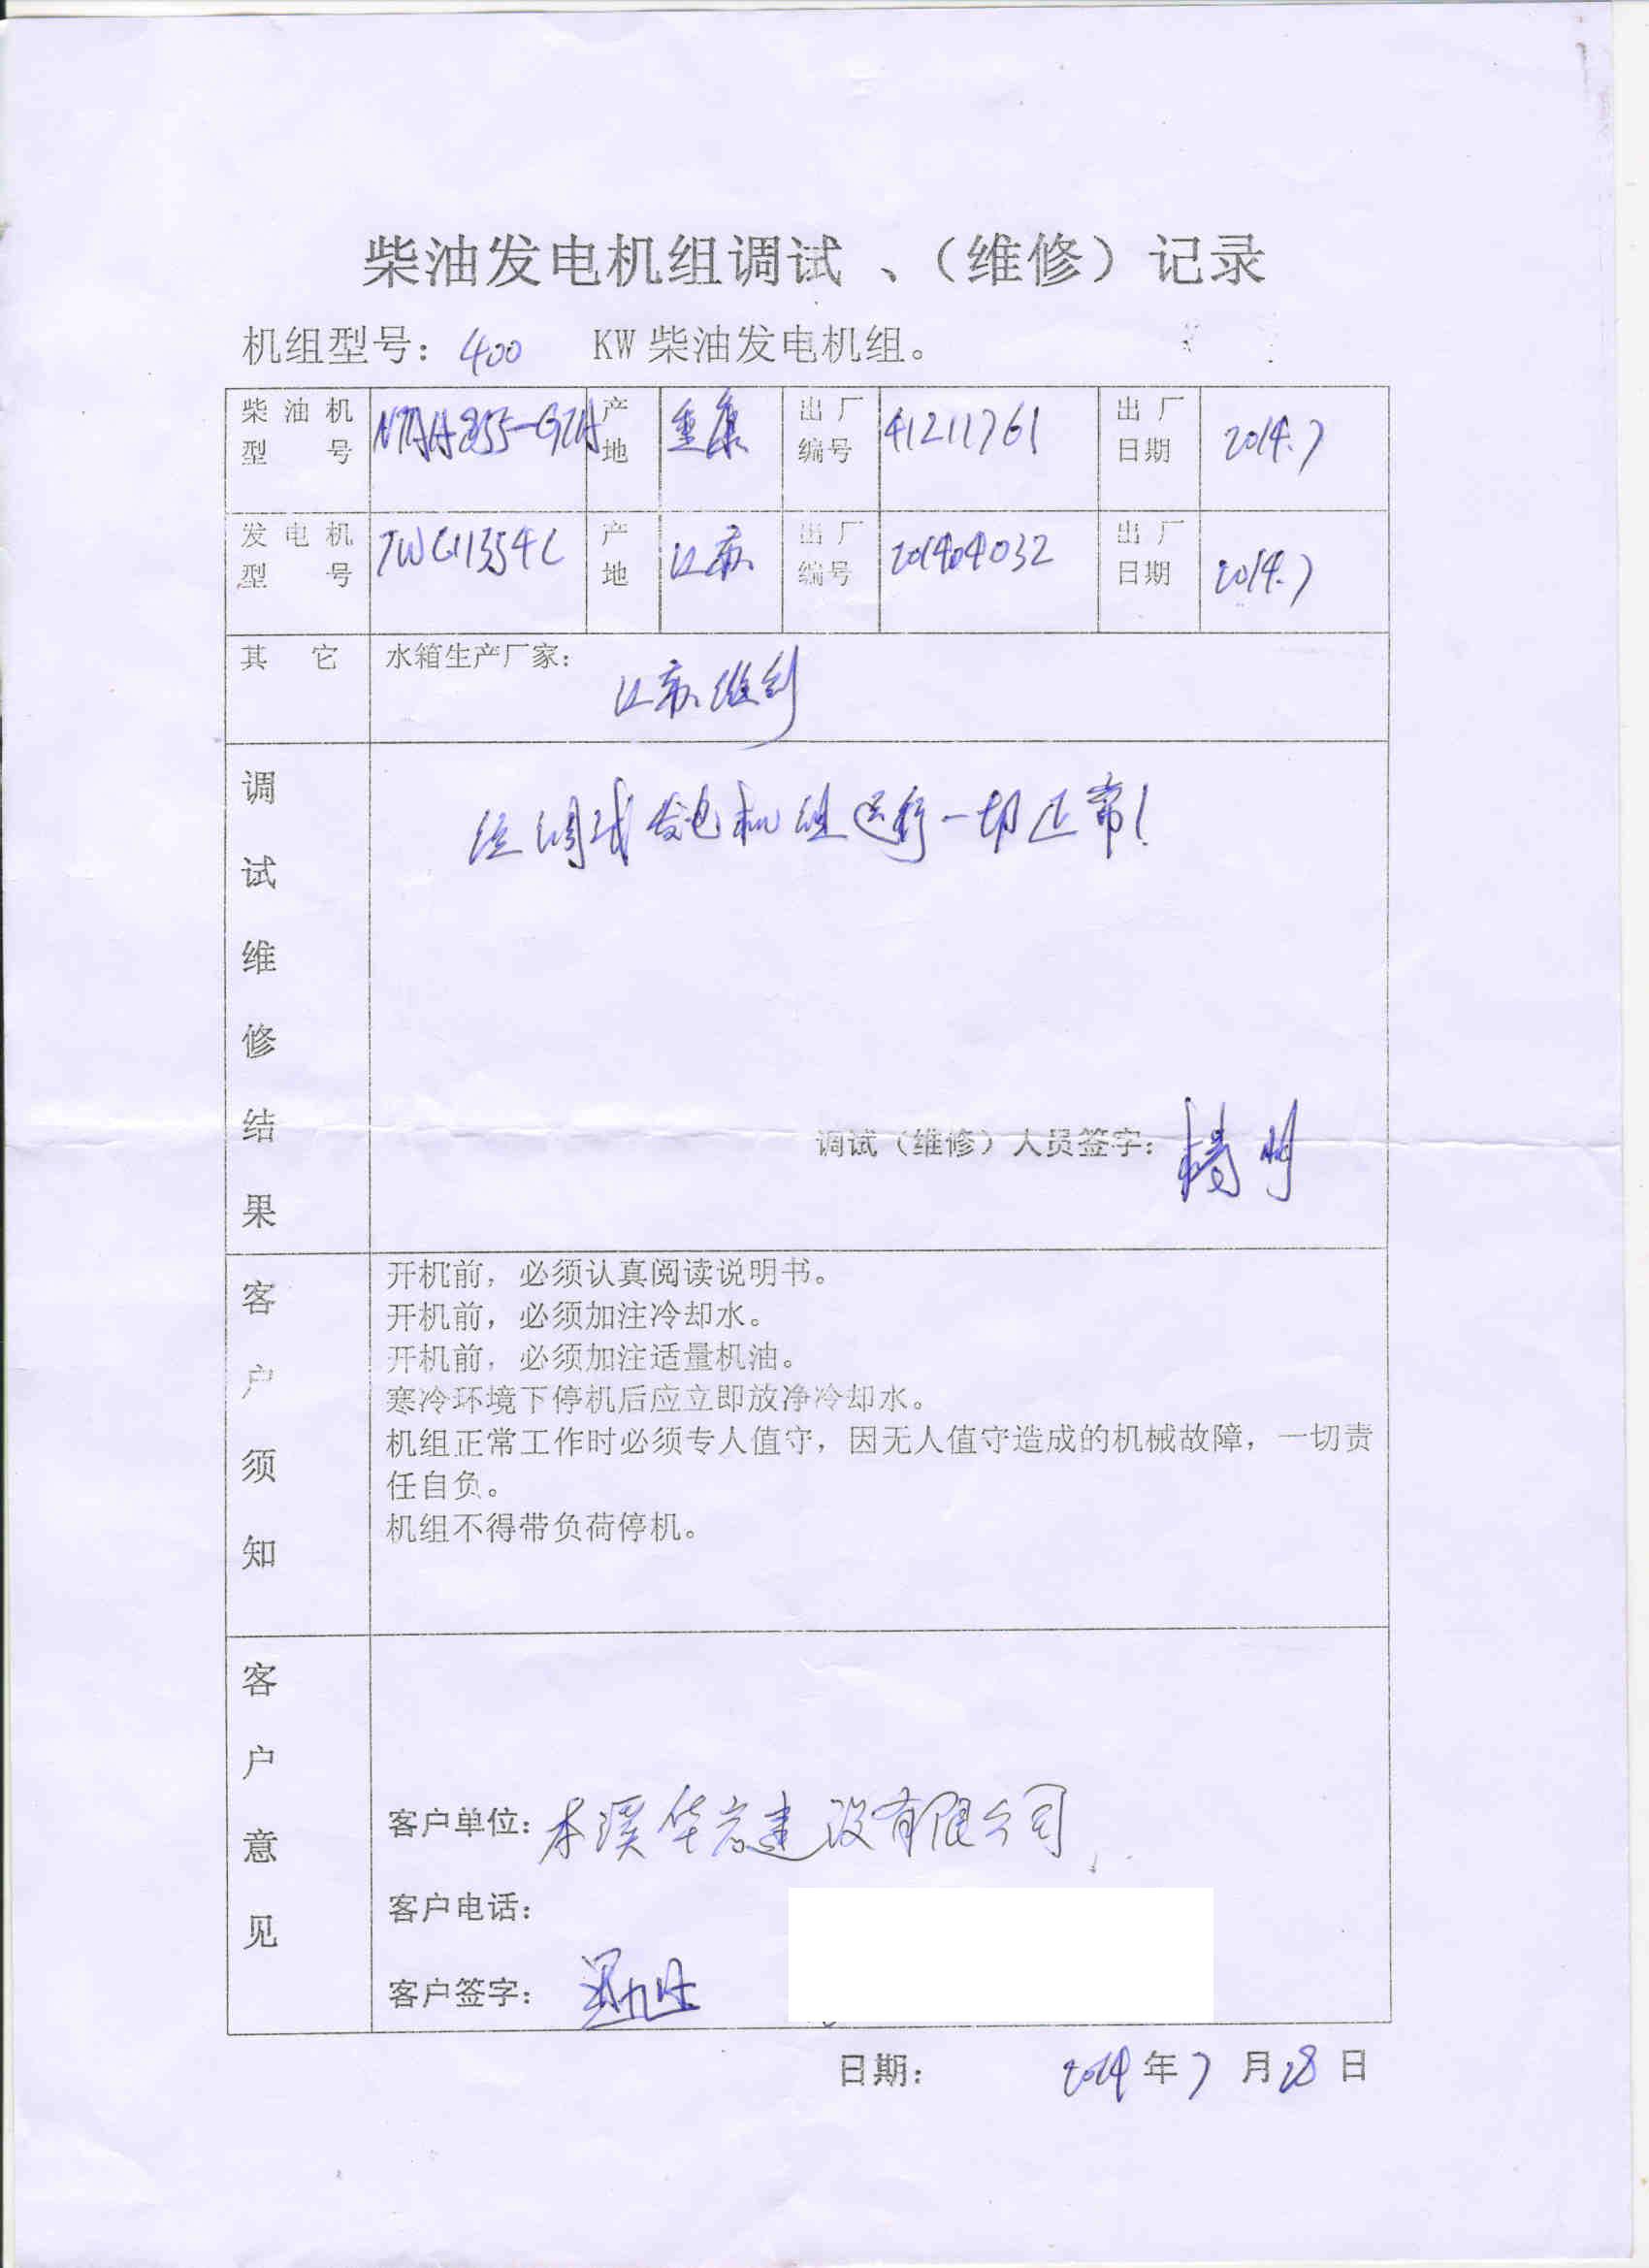 柴油发电机组调试 、（维修）记录
机组型号：400 KW 柴油发电机组。
柴油机型号 NTAA855-G7A 产地 重康 出厂编号 41211761 出厂日期 2014.7
发电机型号 TWG1354C 产地 江苏 出厂编号 201404032 出厂日期 2014.7
其它 水箱生产厂家：
江苏维创
调试维修结果
经调试发电机组运行一切正常！
调试（维修）人员签字：
客户须知
开机前，必须认真阅读说明书。
开机前，必须加注冷却水。
开机前，必须加注适量机油。
寒冷环境下停机后应立即放净冷却水。
机组正常工作时必须专人值守，因无人值守造成的机械故障，一切责
任自负。
机组不得带负荷停机。
客户意见
客户单位：本溪华宏建设有限公司
客户电话：
客户签字：
日期： 2014年7月28日